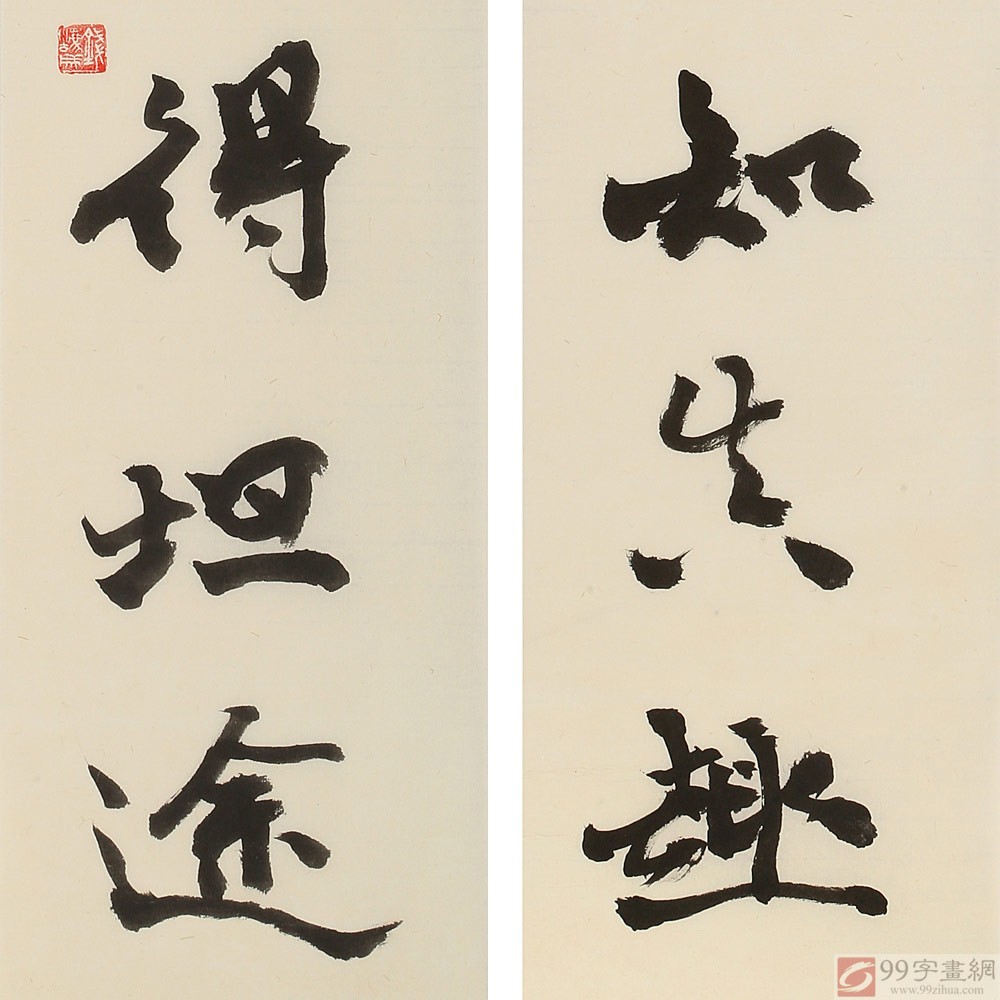 知真趣
得坦途
99字畫網
www.99zihua.com